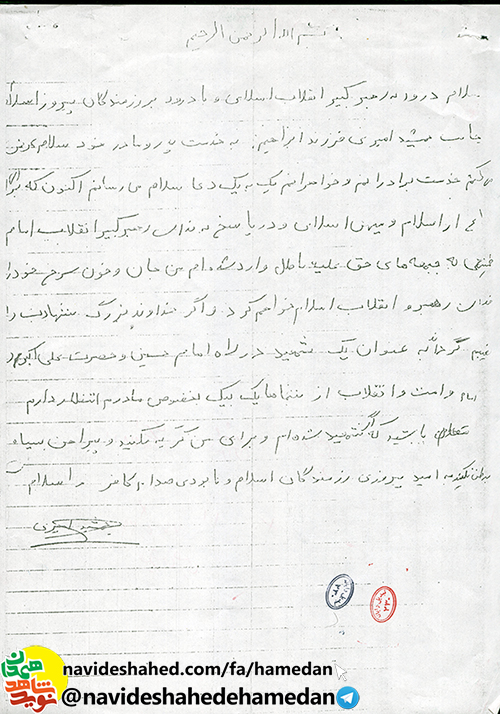 بسم الله الرحمن الرحیم
سلام درود به رهبر کبیر انقلاب اسلامی و با درود بر رزمندگان پیروز اسلام
جانب جمشید امیری فرزند ابراهیم: به خدمت پدر و مادر خود سلام عرض
می‌کنم خدمت برادرانم و خواهرانم یک به یک دعا سلام می رسانم اکنون که برای
دفاع از اسلام و میهن اسلامی و در پاسخ به ندای رهبر کبیر انقلاب امام
خمینی به جبهه های حق علیه باطل وارد شده ام من جان و خون سرخ خود را
فدای رهبر و انقلاب اسلام خواهم کرد و اگر خداوند بزرگ شهادت را
نصیبم گرداند به عنوان یک شهید در راه امام حسین و حضرت علی اکبر و
امام و امت و انقلاب از شماها یک بیک بخصوص مادرم انتظار دارم
باشید که شهید شده ام و برای من گریه نکنید و پیراهن سیاه
بر تن نکنید به امید پیروزی رزمندگان اسلام و نابودی صدام کافر والسلام
جمشید امیری
نوید شاهد همدان
navideshahed.com/fa/hamedan
@navideshahedehamedan